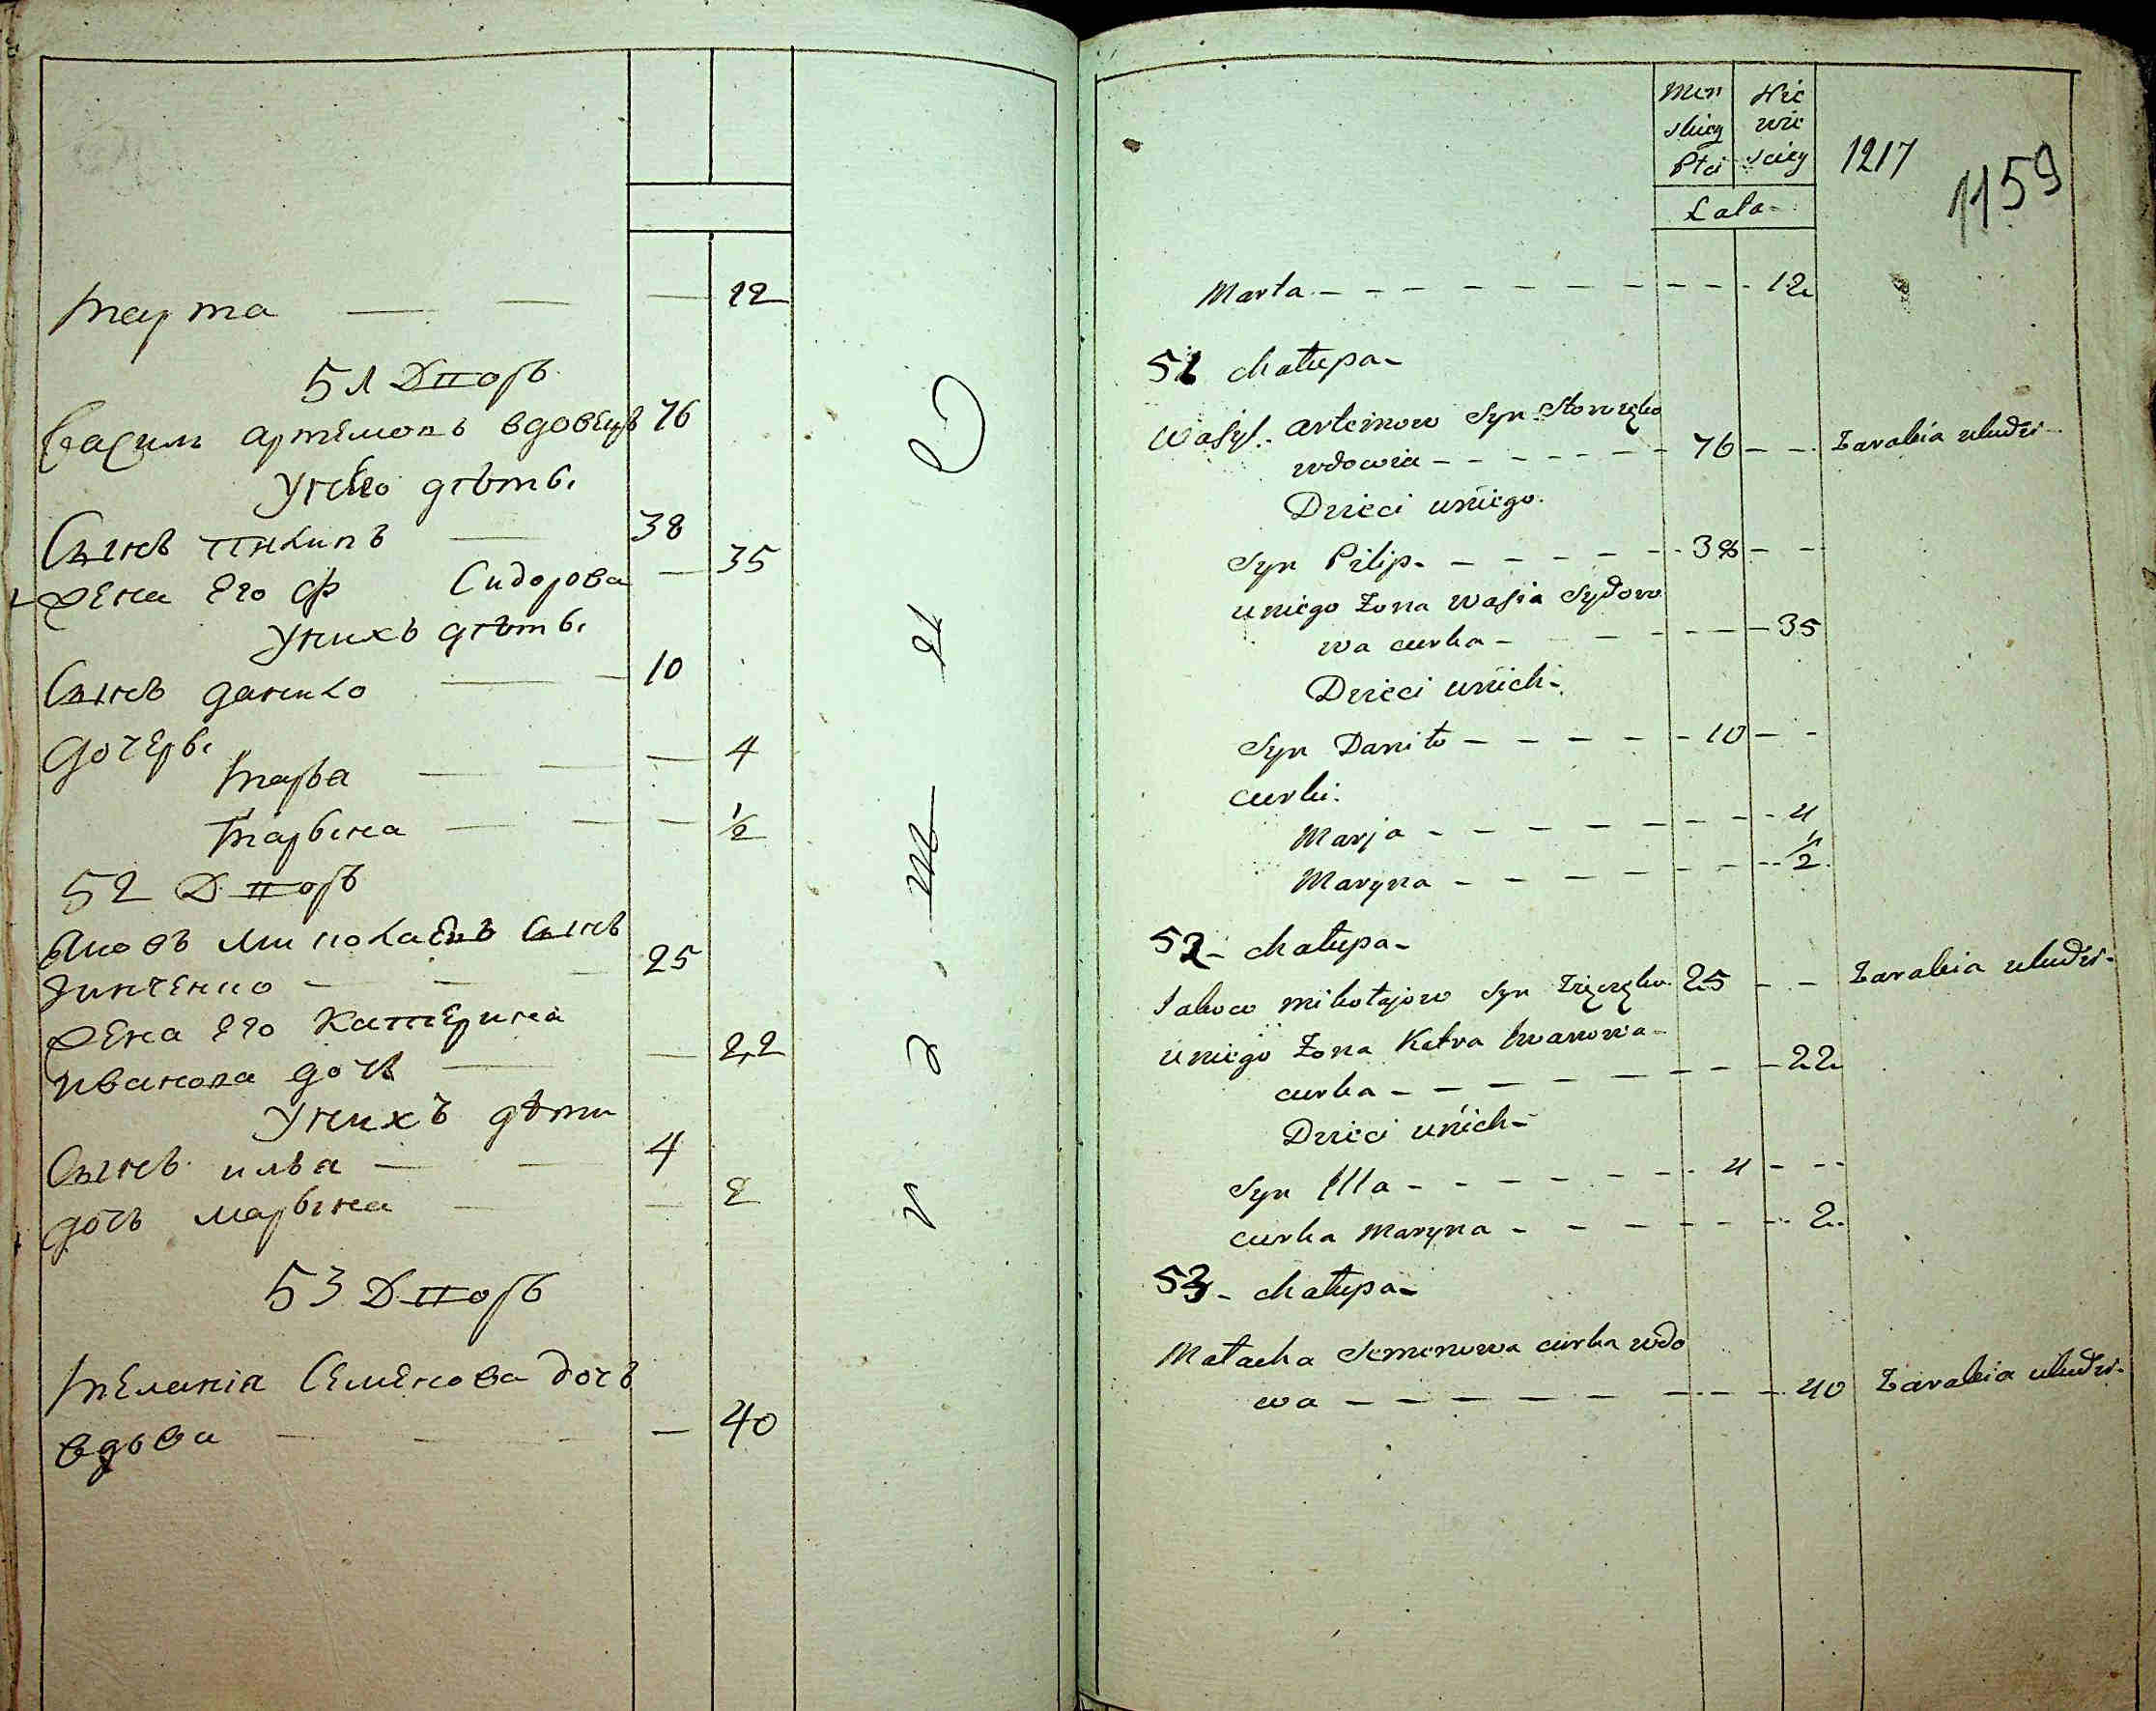 Марта — — — 12
51 Дворъ
Василь Артемовъ вдовецъ 76
У него дѣты
Сынъ Пилипъ — 38
Жена его Ф Сидорова — 35
У нихъ дѣты
Сынъ Данило — 10
Дочеры
Марья — — — 4
Марына — — — ½
52 Дворъ
Яковъ Миколаевъ Сынъ
Зинченко — — — 25
Жена его Катерина
Иванова дочь — — 22
У нихъ дѣти
Сынъ илья — — 4
дочь марына — — 2
53 Дворъ
Меланія Семенова дочь
вдова — — — — 40
С
т
е
Men Nie
skiey wie
Płci sciey
1217
1159
Lata
Marta 12
51 chałupa
Wasyl Artemow Syn
wdowia 76 Zarabia uludzi
Dzieci uniego
Syn Pilip 38
uniego Zona Wasia Sydoro
wa curka 35
Dzieci unich
Syn Daniło 10
curki
Marja 4
Maryna ½
52 chałupa
Jakow Mikołajow Syn 25 Zarabia uludzi
uniego Zona Katra Iwanowa
curka 22
Dzieci unich
Syn Illa 4
curka Maryna 2
53 chałupa
Semenowa curka wdo
wa 40 Zarabia uludzi